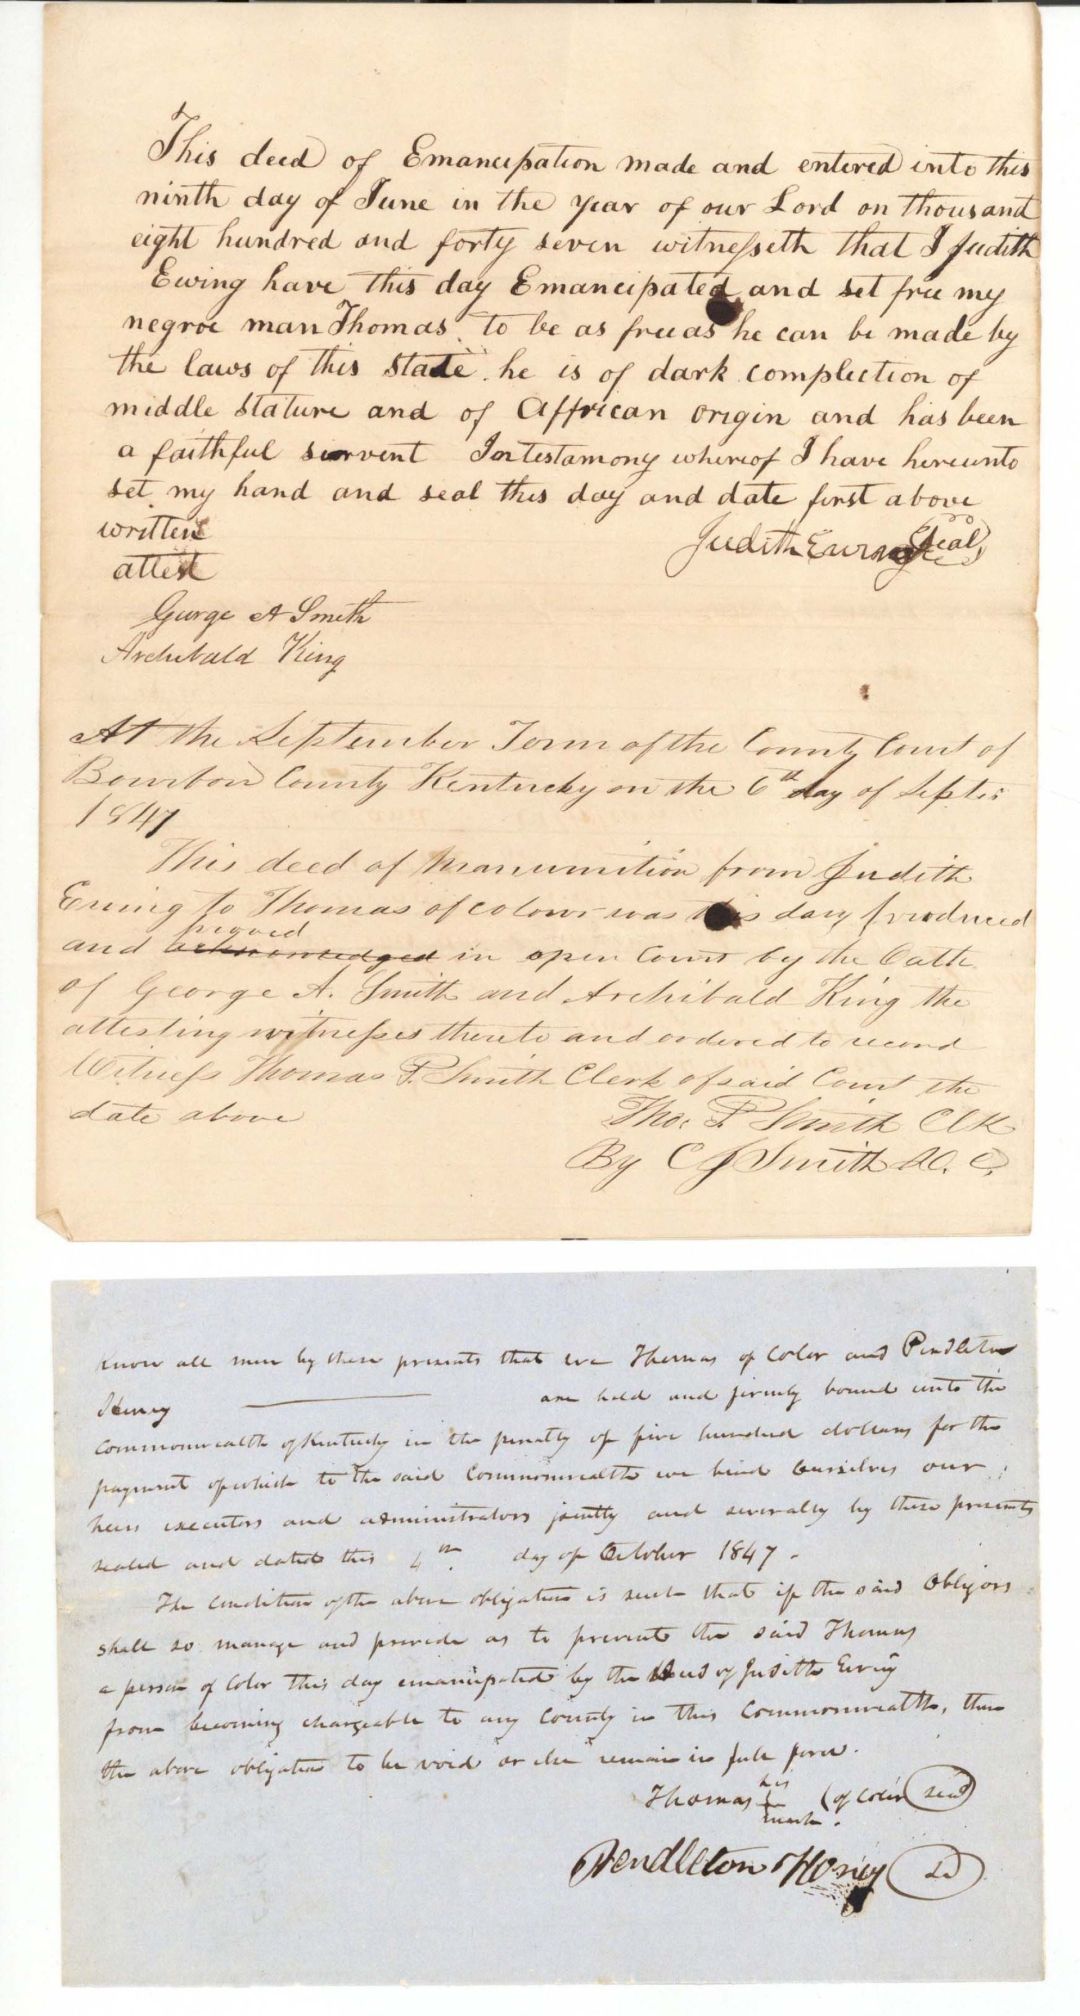 This deed of Emancipation made and entered into this
ninth day of June in the year of our Lord on thousand
eight hundred and forty seven witnesseth that I Judith
Ewing have this day Emancipated and set free my
negroe man Thomas to be as free as he can be made by
the laws of this state he is of dark complection of
middle stature and of Affrican origin and has been
a faithful servent In testamony whereof I have hereunto
set my hand and seal this day and date first above
written
Judith Ewing (Seal)
attest
George A Smith
Archibald King
At the September Term of the County Court of
Bourbon County Kentucky on the 6th day of Septr
1847
This deed of manumition from Judith
Ewing to Thomas of colour was this day produced
and acknowledged proved in open Court by the Oath
of George A. Smith and Archibald King the
attesting witnesses thereto and ordered to record
Witness Thomas P. Smith Clerk of said Court the
date above
Tho. P Smith Clk
By C J Smith D. C.
Know all men by these presents that we Thomas of Color and Pendleton
Honey are held and firmly bound unto the
Commonwealth of Kentucky in the penalty of five hundred dollars for the
payment of which to the said Commonwealth we bind ourselves our
heirs executors and administrators jointly and severally by these presents
sealed and dated this 4th day of October 1847.
The condition of the above obligation is such that if the said Obligors
shall so manage and provide as to prevent the said Thomas
a person of Color this day emancipated by the deed of Judith Ewing
from becoming chargeable to any County in this Commonwealth, then
the above obligation to be void or else remain in full force.
Thomas his mark (of Color seal
Pendleton Honey